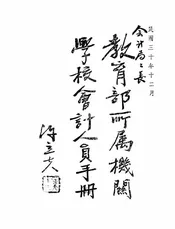 民國三十年十二月
會計局之長
教育部所属機關
學校會計人員手冊
陳立夫